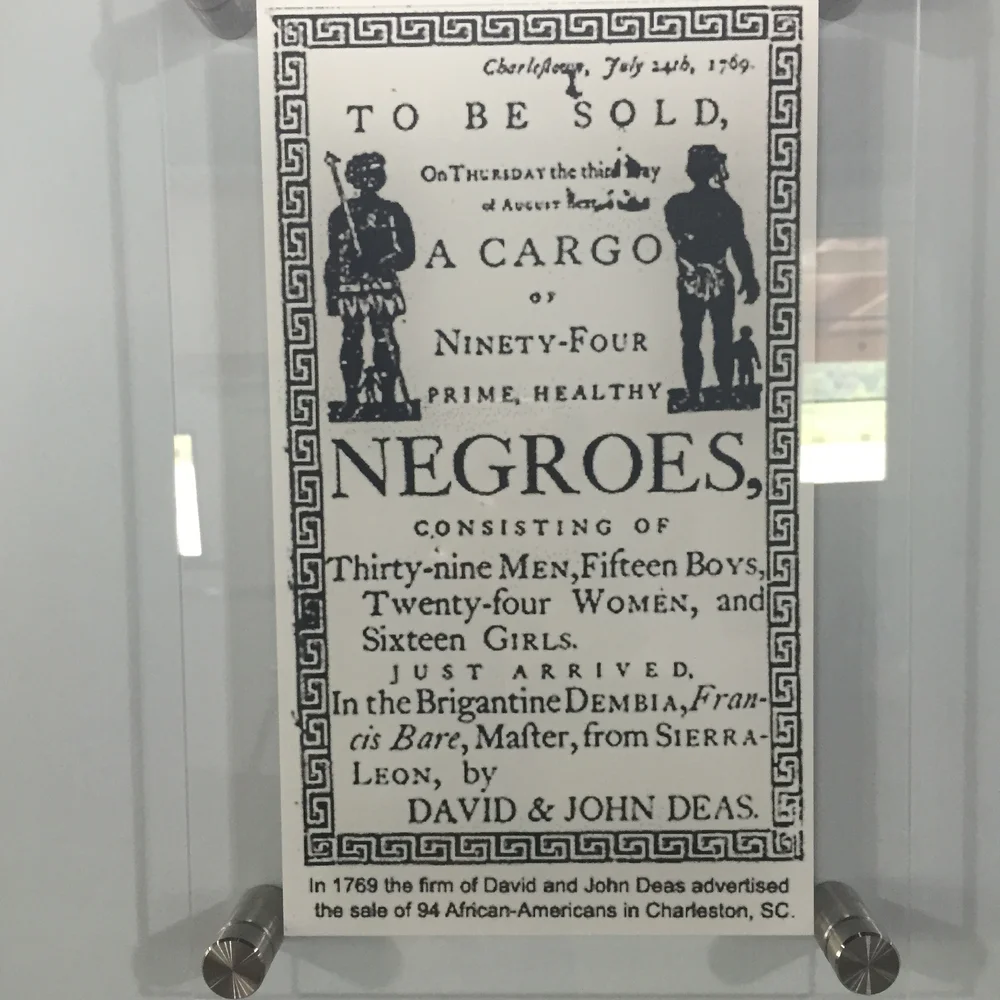 Charlestown, July 24th, 1769.
TO BE SOLD,
On THURSDAY the third Day
of AUGUST next,
A CARGO
OF
NINETY-FOUR
PRIME, HEALTHY
NEGROES,
CONSISTING OF
Thirty-nine MEN, Fifteen BOYS,
Twenty-four WOMEN, and
Sixteen GIRLS.
JUST ARRIVED,
In the Brigantine DEMBIA, Fran-
cis Bare, Maſter, from SIERRA-
LEON, by
DAVID & JOHN DEAS.
In 1769 the firm of David and John Deas advertised
the sale of 94 African-Americans in Charleston, SC.